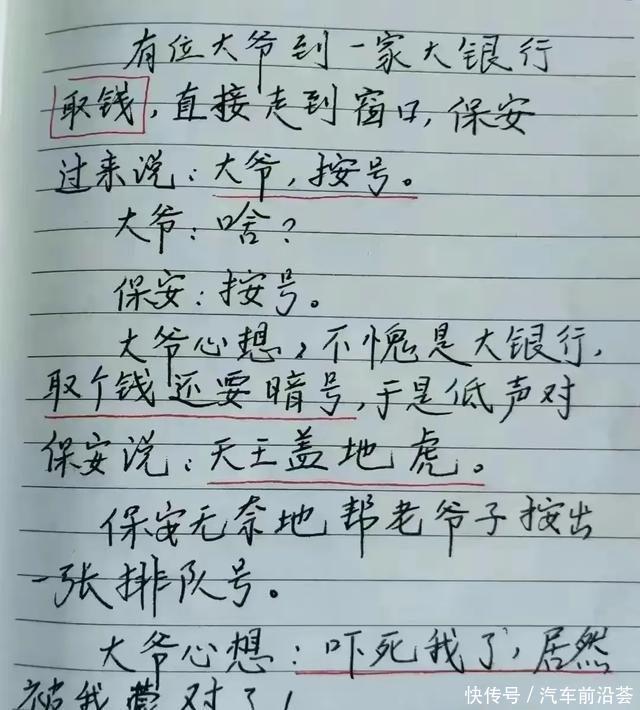 有位大爷到一家大银行
取钱，直接走到窗口，保安
过来说：大爷，按号。
大爷：啥？
保安：按号。
大爷心想，不愧是大银行，
取个钱还要暗号，于是低声对
保安说：天王盖地虎。
保安无奈地帮老爷子按出
一张排队号。
大爷心想：吓死我了，居然
被我蒙对了！
快传号／汽车前沿荟